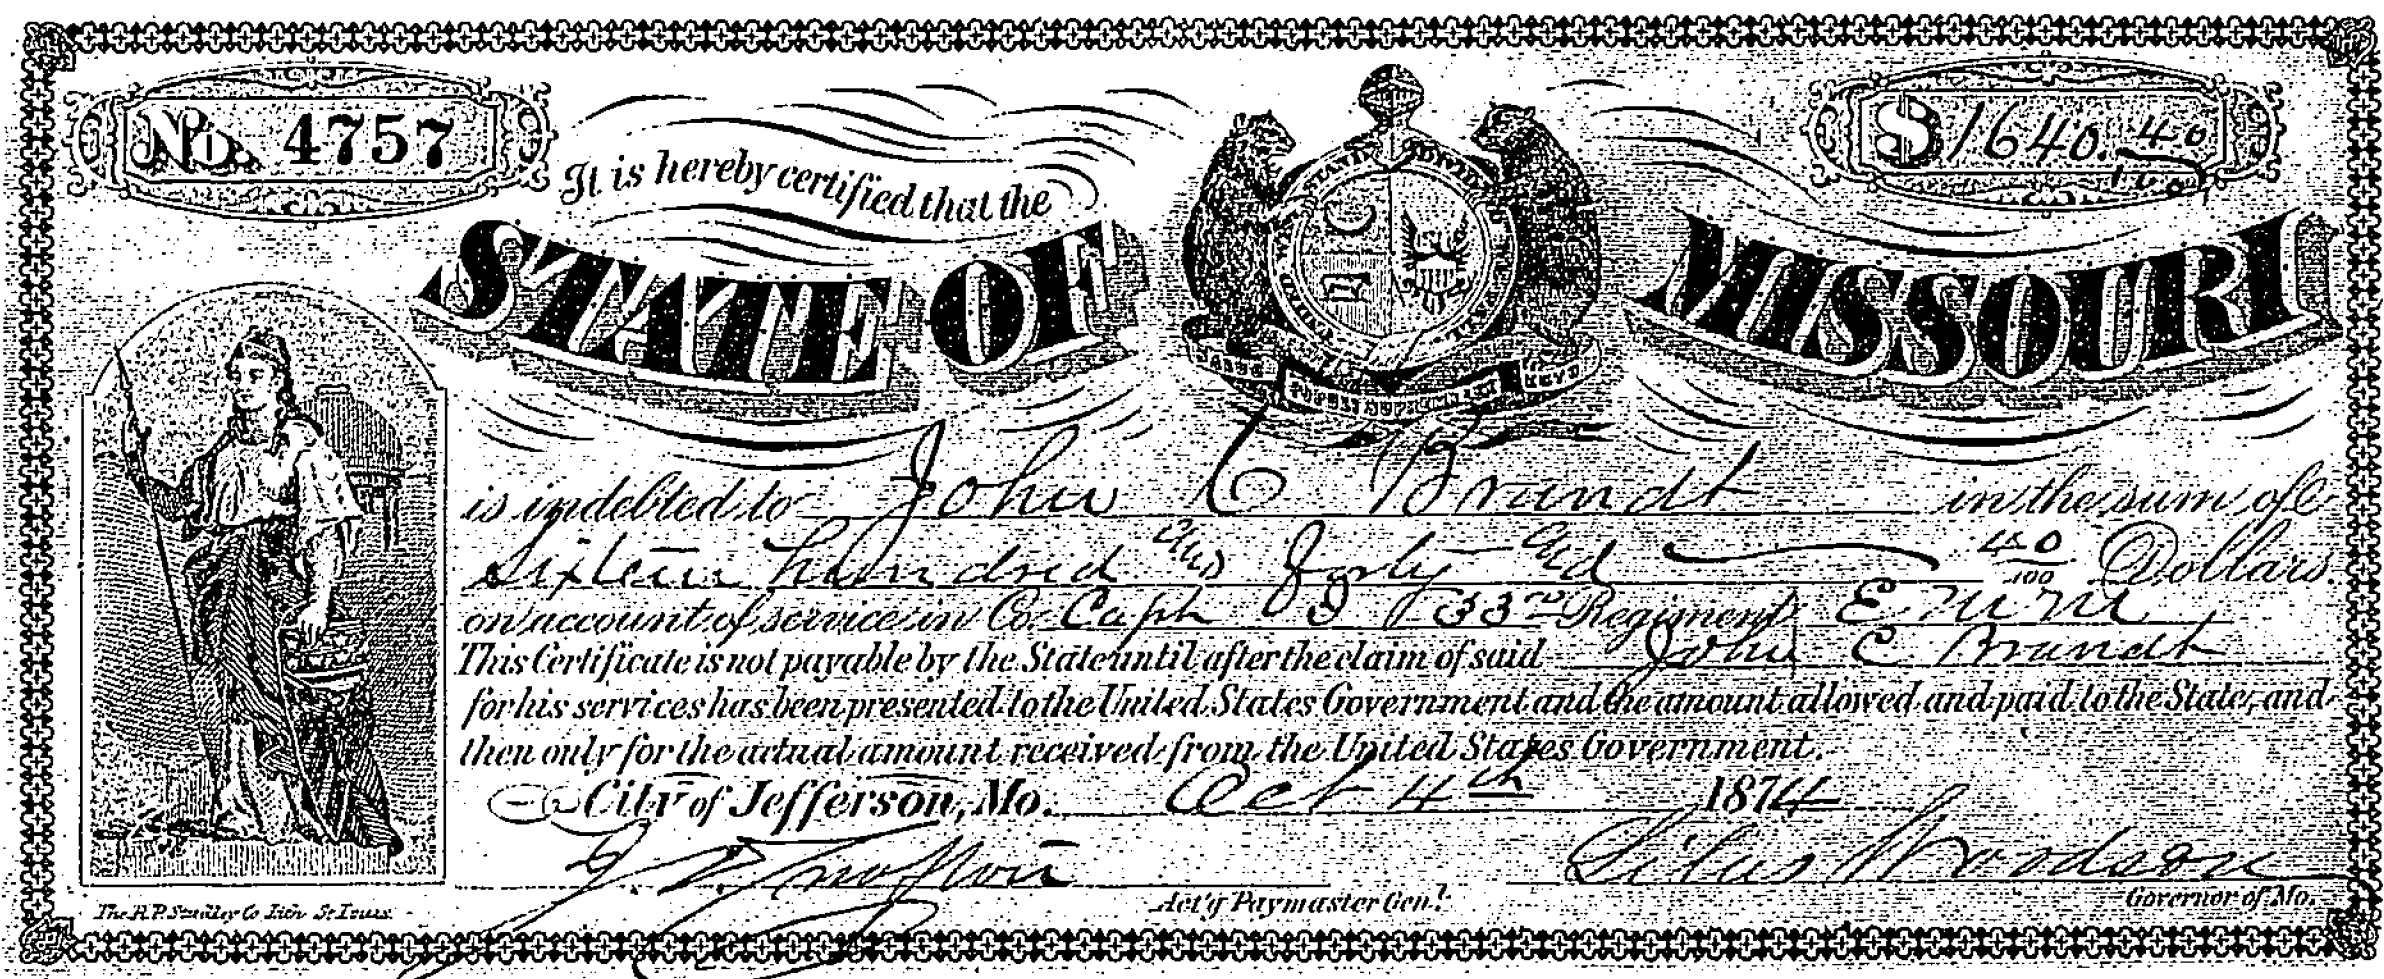 No. 4757
$1640.40/100
It is hereby certified that the
STATE OF MISSOURI
UNITED WE STAND DIVIDED WE FALL
is indebted to John C Brandt in the sum of
Sixteen hundred and forty and 40/100 Dollars
on account of service in Co. Capt I 33rd Regiment E M M
This Certificate is not payable by the State until after the claim of said John C Brandt
for his services has been presented to the United States Government and the amount allowed and paid to the State, and
then only for the actual amount received from the United States Government.
City of Jefferson, Mo. Oct 4th 1874
Silas Woodson
Act'g Paymaster Genl.
Governor of Mo.
The R.P. Studley Co. Lith. St Louis.